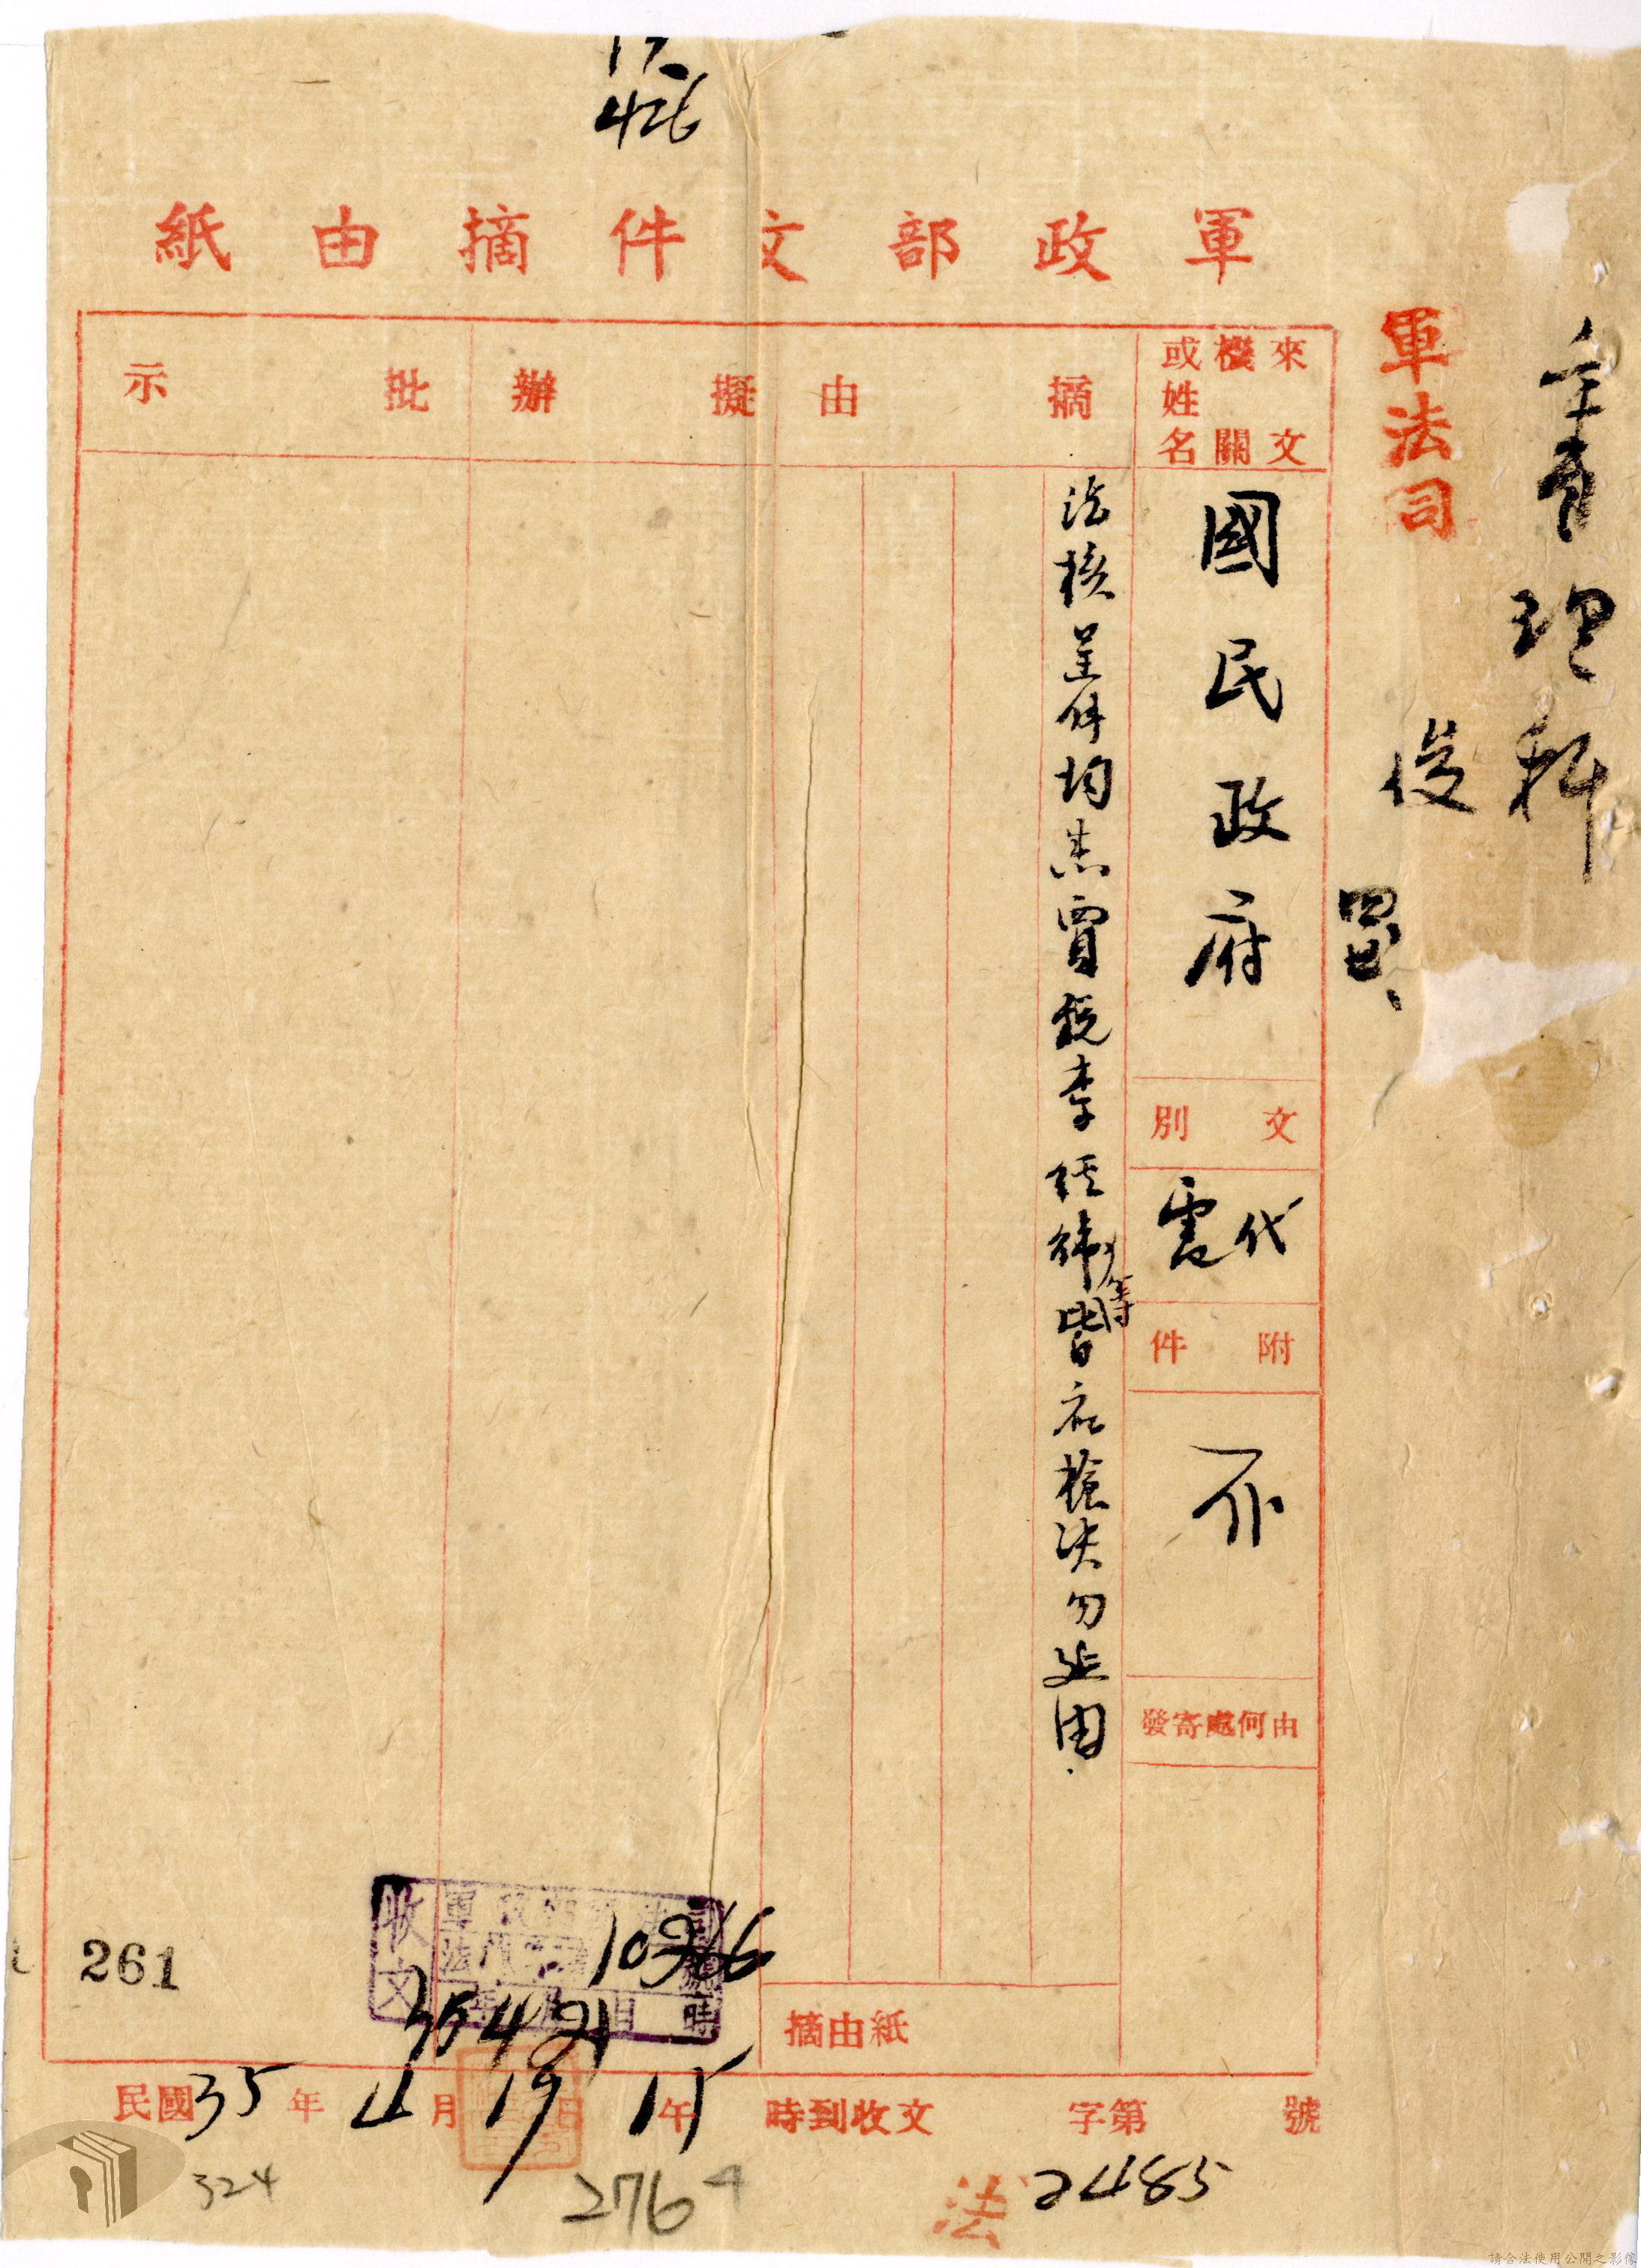 426
軍政部文件摘由紙
軍法司
審理科
來文機關或姓名
國民政府
文別
代電
附件
由何處寄發
摘由
法核呈件均悉賈銳李經緯等皆
檢決勿延由
擬辦
批示
摘由紙
收文
10966
35 4 21
261
民國35年4月19日15午時到收文 字第 號
法 2485
324
2764
請合法使用公開之影像